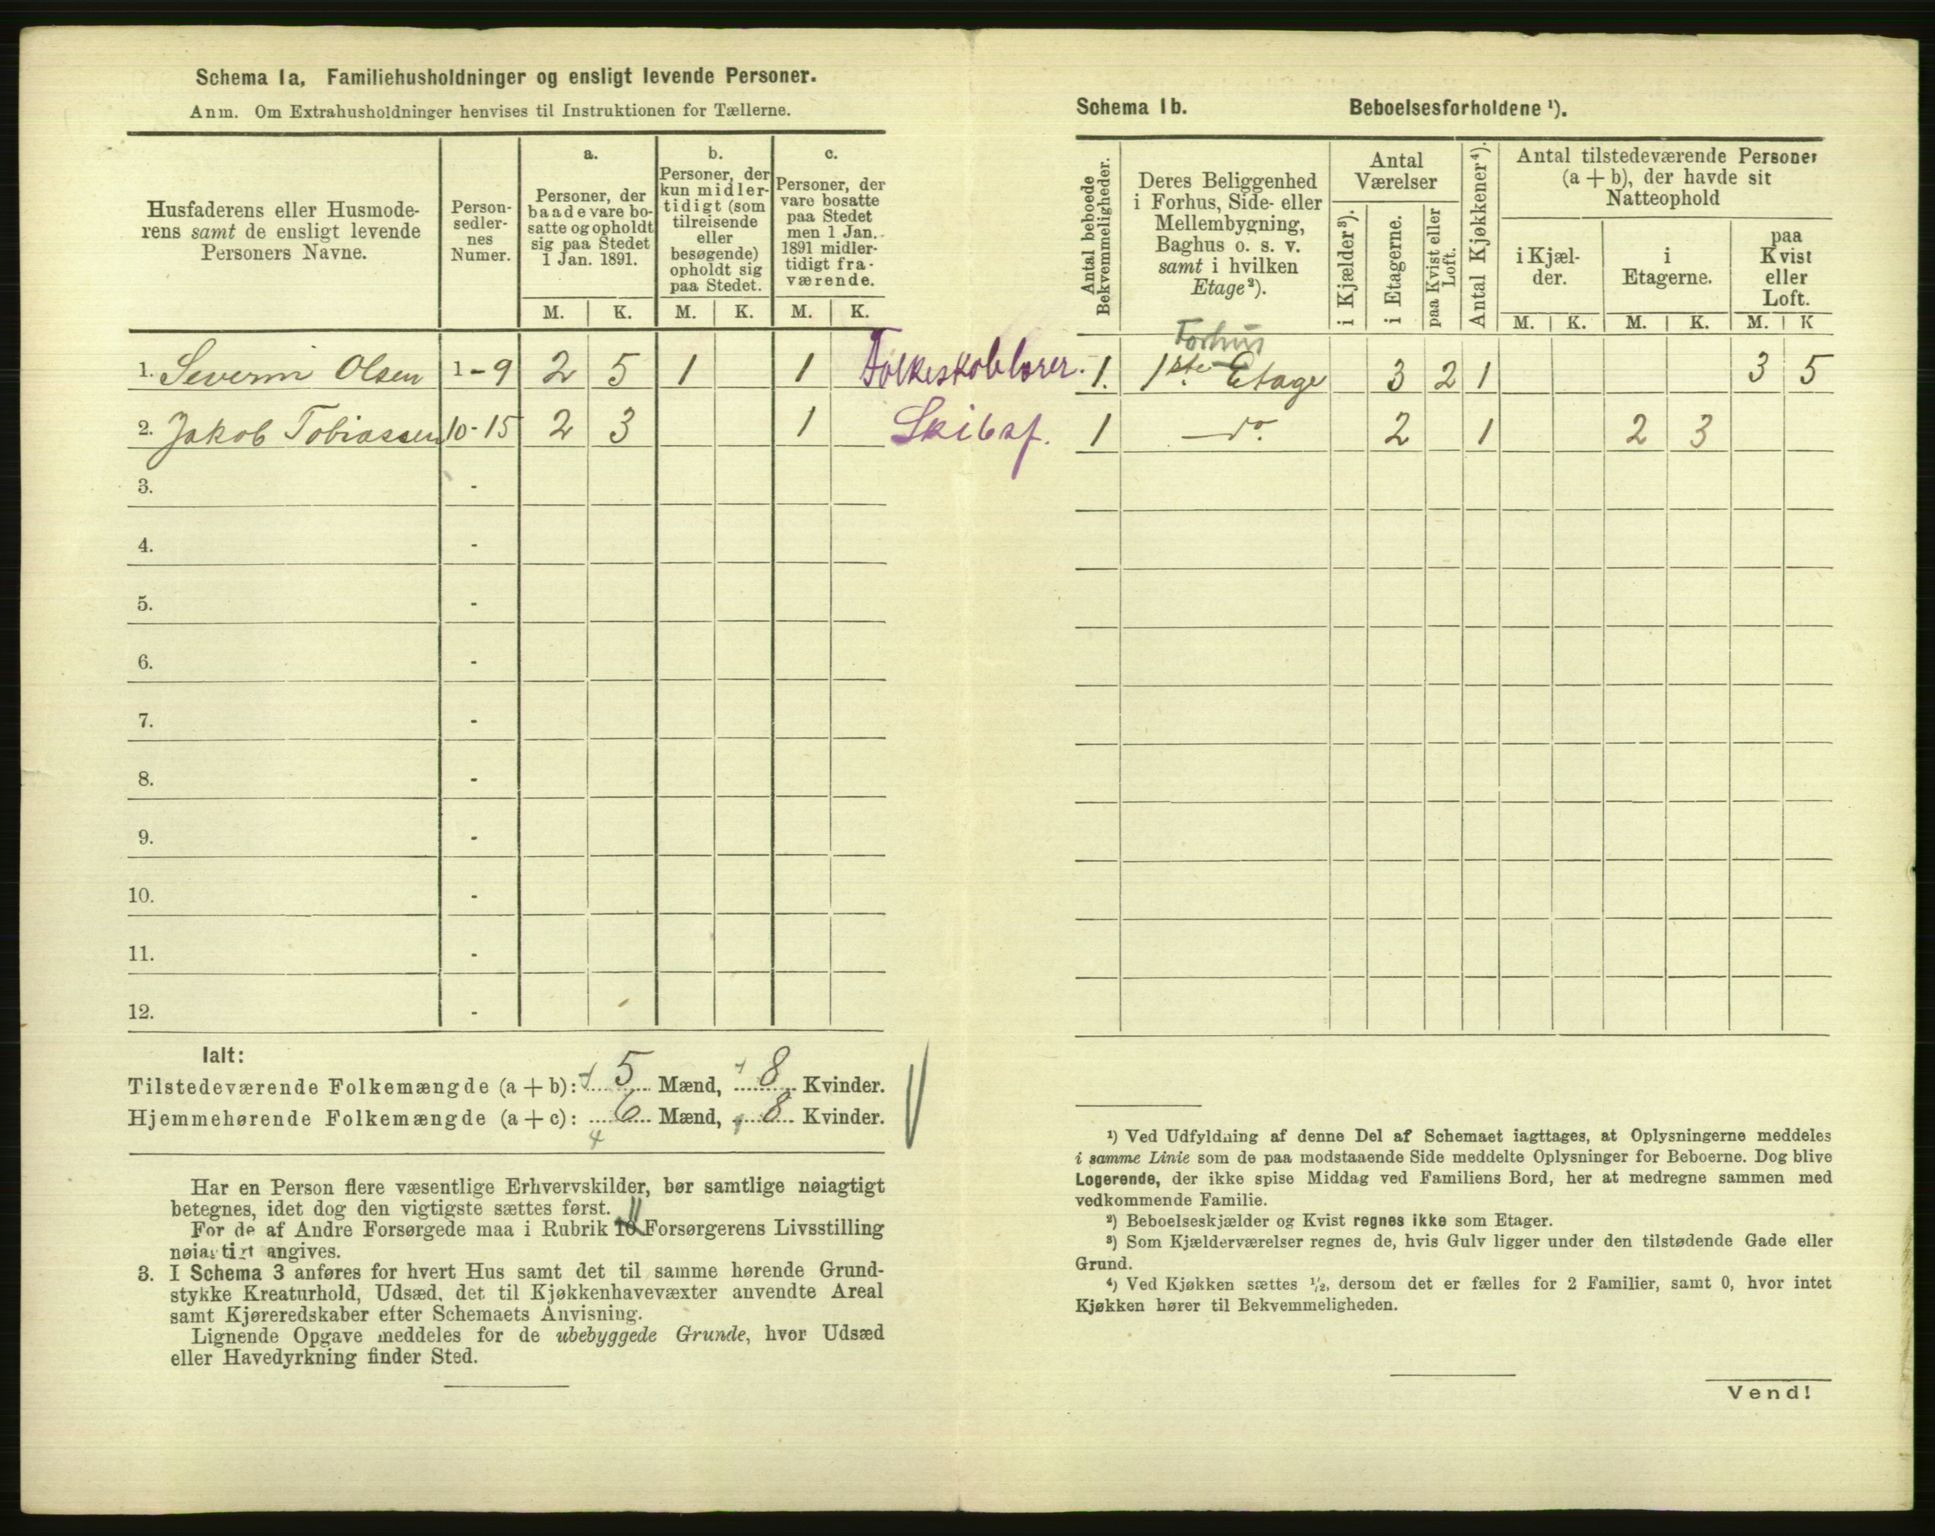 Schema Ia, Familiehusholdninger og ensligt levende Personer.
Anm. Om Extrahusholdninger henvises til Instruktionen for Tællerne.
Husfaderens eller Husmode-
rens samt de ensligt levende
Personers Navne.
Person-
sedler-
nes
Numer.
a.
Personer, der
baade vare bo-
satte og opholdt
sig paa Stedet
1 Jan. 1891.
b.
Personer, der
kun midler-
tidigt (som
tilreisende
eller
besøgende)
opholdt sig
paa Stedet.
c.
Personer, der
vare bosatte
paa Stedet
men 1 Jan.
1891 midler-
tidigt fra-
værende.
M. K. M. K. M. K.
1. Severin Olsen 1-9 2 5 1 1 Folkeskolelærer.
2. Jakob Tobiassen 10-15 2 3 1 Skibsf.
3. -
4. -
5. -
6. -
7. -
8. -
9. -
10. -
11. -
12. -
Ialt:
Tilstedeværende Folkemængde (a + b): 5 Mænd, 8 Kvinder.
Hjemmehørende Folkemængde (a + c): 6 Mænd, 8 Kvinder.
4
Har en Person flere væsentlige Erhvervskilder, bør samtlige nøiagtigt
betegnes, idet dog den vigtigste sættes først.
For de af Andre Forsørgede maa i Rubrik 10 Forsørgerens Livsstilling
nøiagtigt angives.
3. I Schema 3 anføres for hvert Hus samt det til samme hørende Grund-
stykke Kreaturhold, Udsæd, det til Kjøkkenhavevæxter anvendte Areal
samt Kjøreredskaber efter Schemaets Anvisning.
Lignende Opgave meddeles for de ubebyggede Grunde, hvor Udsæd
eller Havedyrkning finder Sted.
Schema Ib. Beboelsesforholdene ¹).
Antal beboede
Bekvemmeligheder.
Deres Beliggenhed
i Forhus, Side- eller
Mellembygning,
Baghus o. s. v.
samt i hvilken
Etage²).
Antal
Værelser
i Kjælder³).
i Etagerne.
paa Kvist eller
Loft.
Antal Kjøkkener⁴).
Antal tilstedeværende Personer
(a + b), der havde sit
Natteophold
i Kjæl-
der.
i
Etagerne.
paa
Kvist
eller
Loft.
M. K. M. K. M. K
Forhus
1. 1ste Etage 3 2 1 3 5
1 do. 2 1 2 3
¹) Ved Udfyldning af denne Del af Schemaet iagttages, at Oplysningerne meddeles
i samme Linie som de paa modstaaende Side meddelte Oplysninger for Beboerne. Dog blive
Logerende, der ikke spise Middag ved Familiens Bord, her at medregne sammen med
vedkommende Familie.
²) Beboelseskjælder og Kvist regnes ikke som Etager.
³) Som Kjælderværelser regnes de, hvis Gulv ligger under den tilstødende Gade eller
Grund.
⁴) Ved Kjøkken sættes ½, dersom det er fælles for 2 Familier, samt 0, hvor intet
Kjøkken hører til Bekvemmeligheden.
Vend!